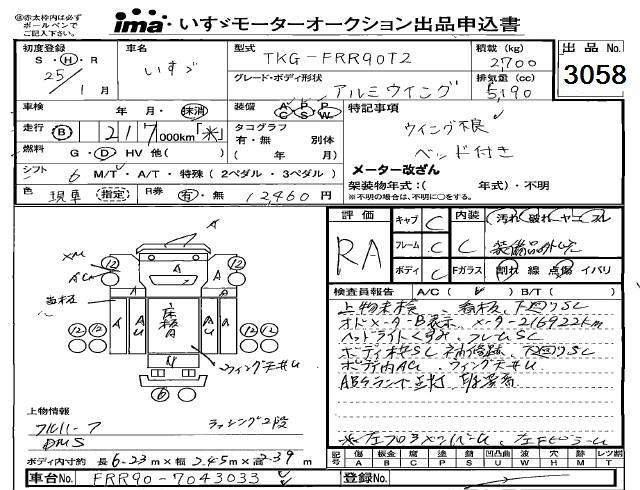 ◎赤太枠内は必ず
ボールペンで
ご記入下さい。
ima いすゞモーターオークション出品申込書
初度登録 車名 型式 TKG-FRR90T2 積載 (kg) 2700 出品 No.
S・H・R 25/1月 いすゞ グレード・ボディ形状 アルミウイング 排気量 (cc) 5,190 3058
車検 年・月・抹消 装備 AC PS PW 特記事項
走行 B 217,000km「米」 タコグラフ 有・無 別体 ウイング不良
燃料 G・D HV 他( ) ( 年 月) ベッド付き
シフト 6 M/T・A/T・特殊(2ペダル・3ペダル) メーター改ざん
色 現車 (指定) R券 有・無 12,460円 架装物年式:( 年式)・不明
※不明の場合は、不明に○をする。
評価 キャブ C 内装 汚れ 破れ ヤニ スレ
RA フレーム C C 装備品外し穴
ボディ C Fガラス 割れ 線 点傷 イバリ
検査員報告 A/C( ) B/T( )
上物未検、看板、下廻りSC
オドメーターB表示、メーター216922km
ヘッドライトくすみ、フレームSC
ボディ横SC 補修跡、下廻りSC
ボディ内AU、ウィング天井U
ABSランプ点灯
床板A
ウィング天井U
上物情報
フルハーフ ラッシング2段
DMS
ボディ内寸約 長 6.23m×幅 2.45m×高 2.39m
記号 傷A 板金B 腐C 塗P 錆S 凹凸曲U 波W 穴H 跡M レツ割T
車台No. FRR90-7043033 登録No.